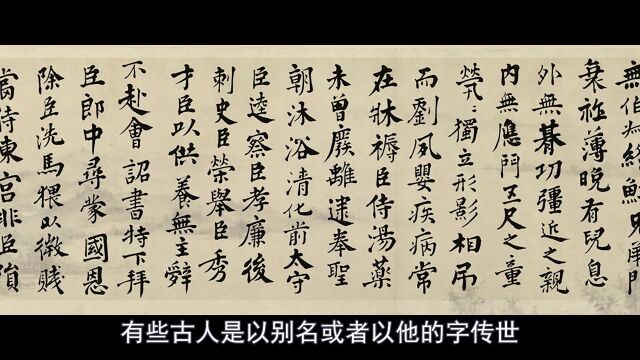 無伯叔終鮮兄弟門
衰祚薄晚有兒息
外無朞功彊近之親
內無應門五尺之童
煢〻獨立形影相吊
而劉夙嬰疾病常
在牀褥臣侍湯藥
未曾廢離逮奉聖
朝沐浴清化前太守
臣逵察臣孝廉後
刺史臣榮舉臣秀
才臣以供養無主辭
不赴會詔書特下拜
臣郎中尋蒙國恩
除臣洗馬猥以微賤
當侍東宮非臣隕
有些古人是以别名或者以他的字传世